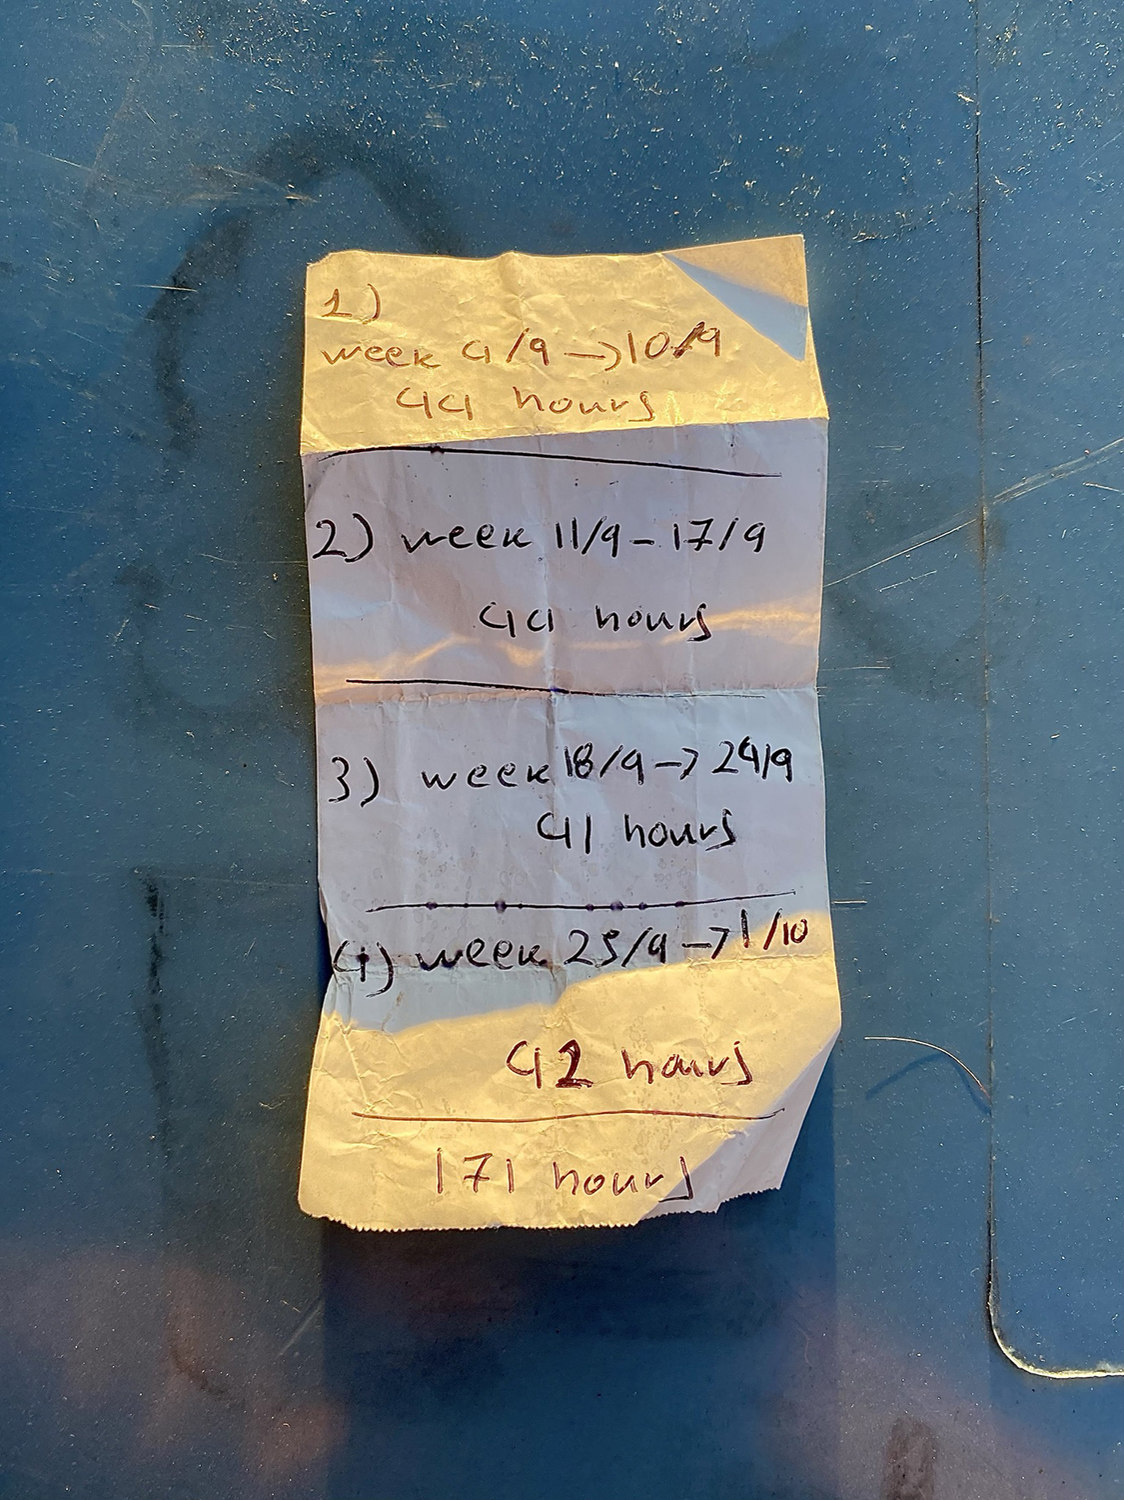 1)
week 4/9 → 10/9
44 hours
2) week 11/9 - 17/9
44 hours
3) week 18/9 → 24/9
41 hours
4) week 25/9 → 1/10
42 hours
171 hours